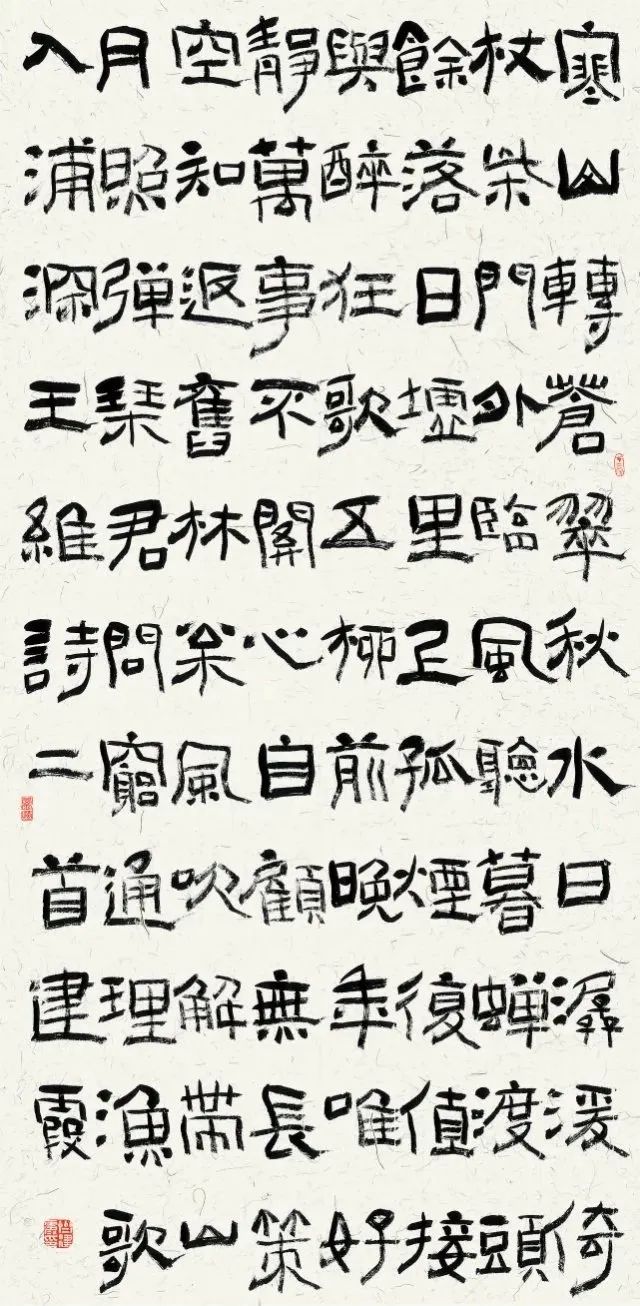 寒山轉蒼翠秋水日潺湲倚
杖柴門外臨風聽暮蝉渡頭
餘落日墟里上孤煙復值接
輿醉狂歌五柳前晚年唯好
靜萬事不關心自顧無長策
空知返舊林枀風吹解帶山
月照弹琴君問窮通理漁歌
入浦深王維詩二首建霞